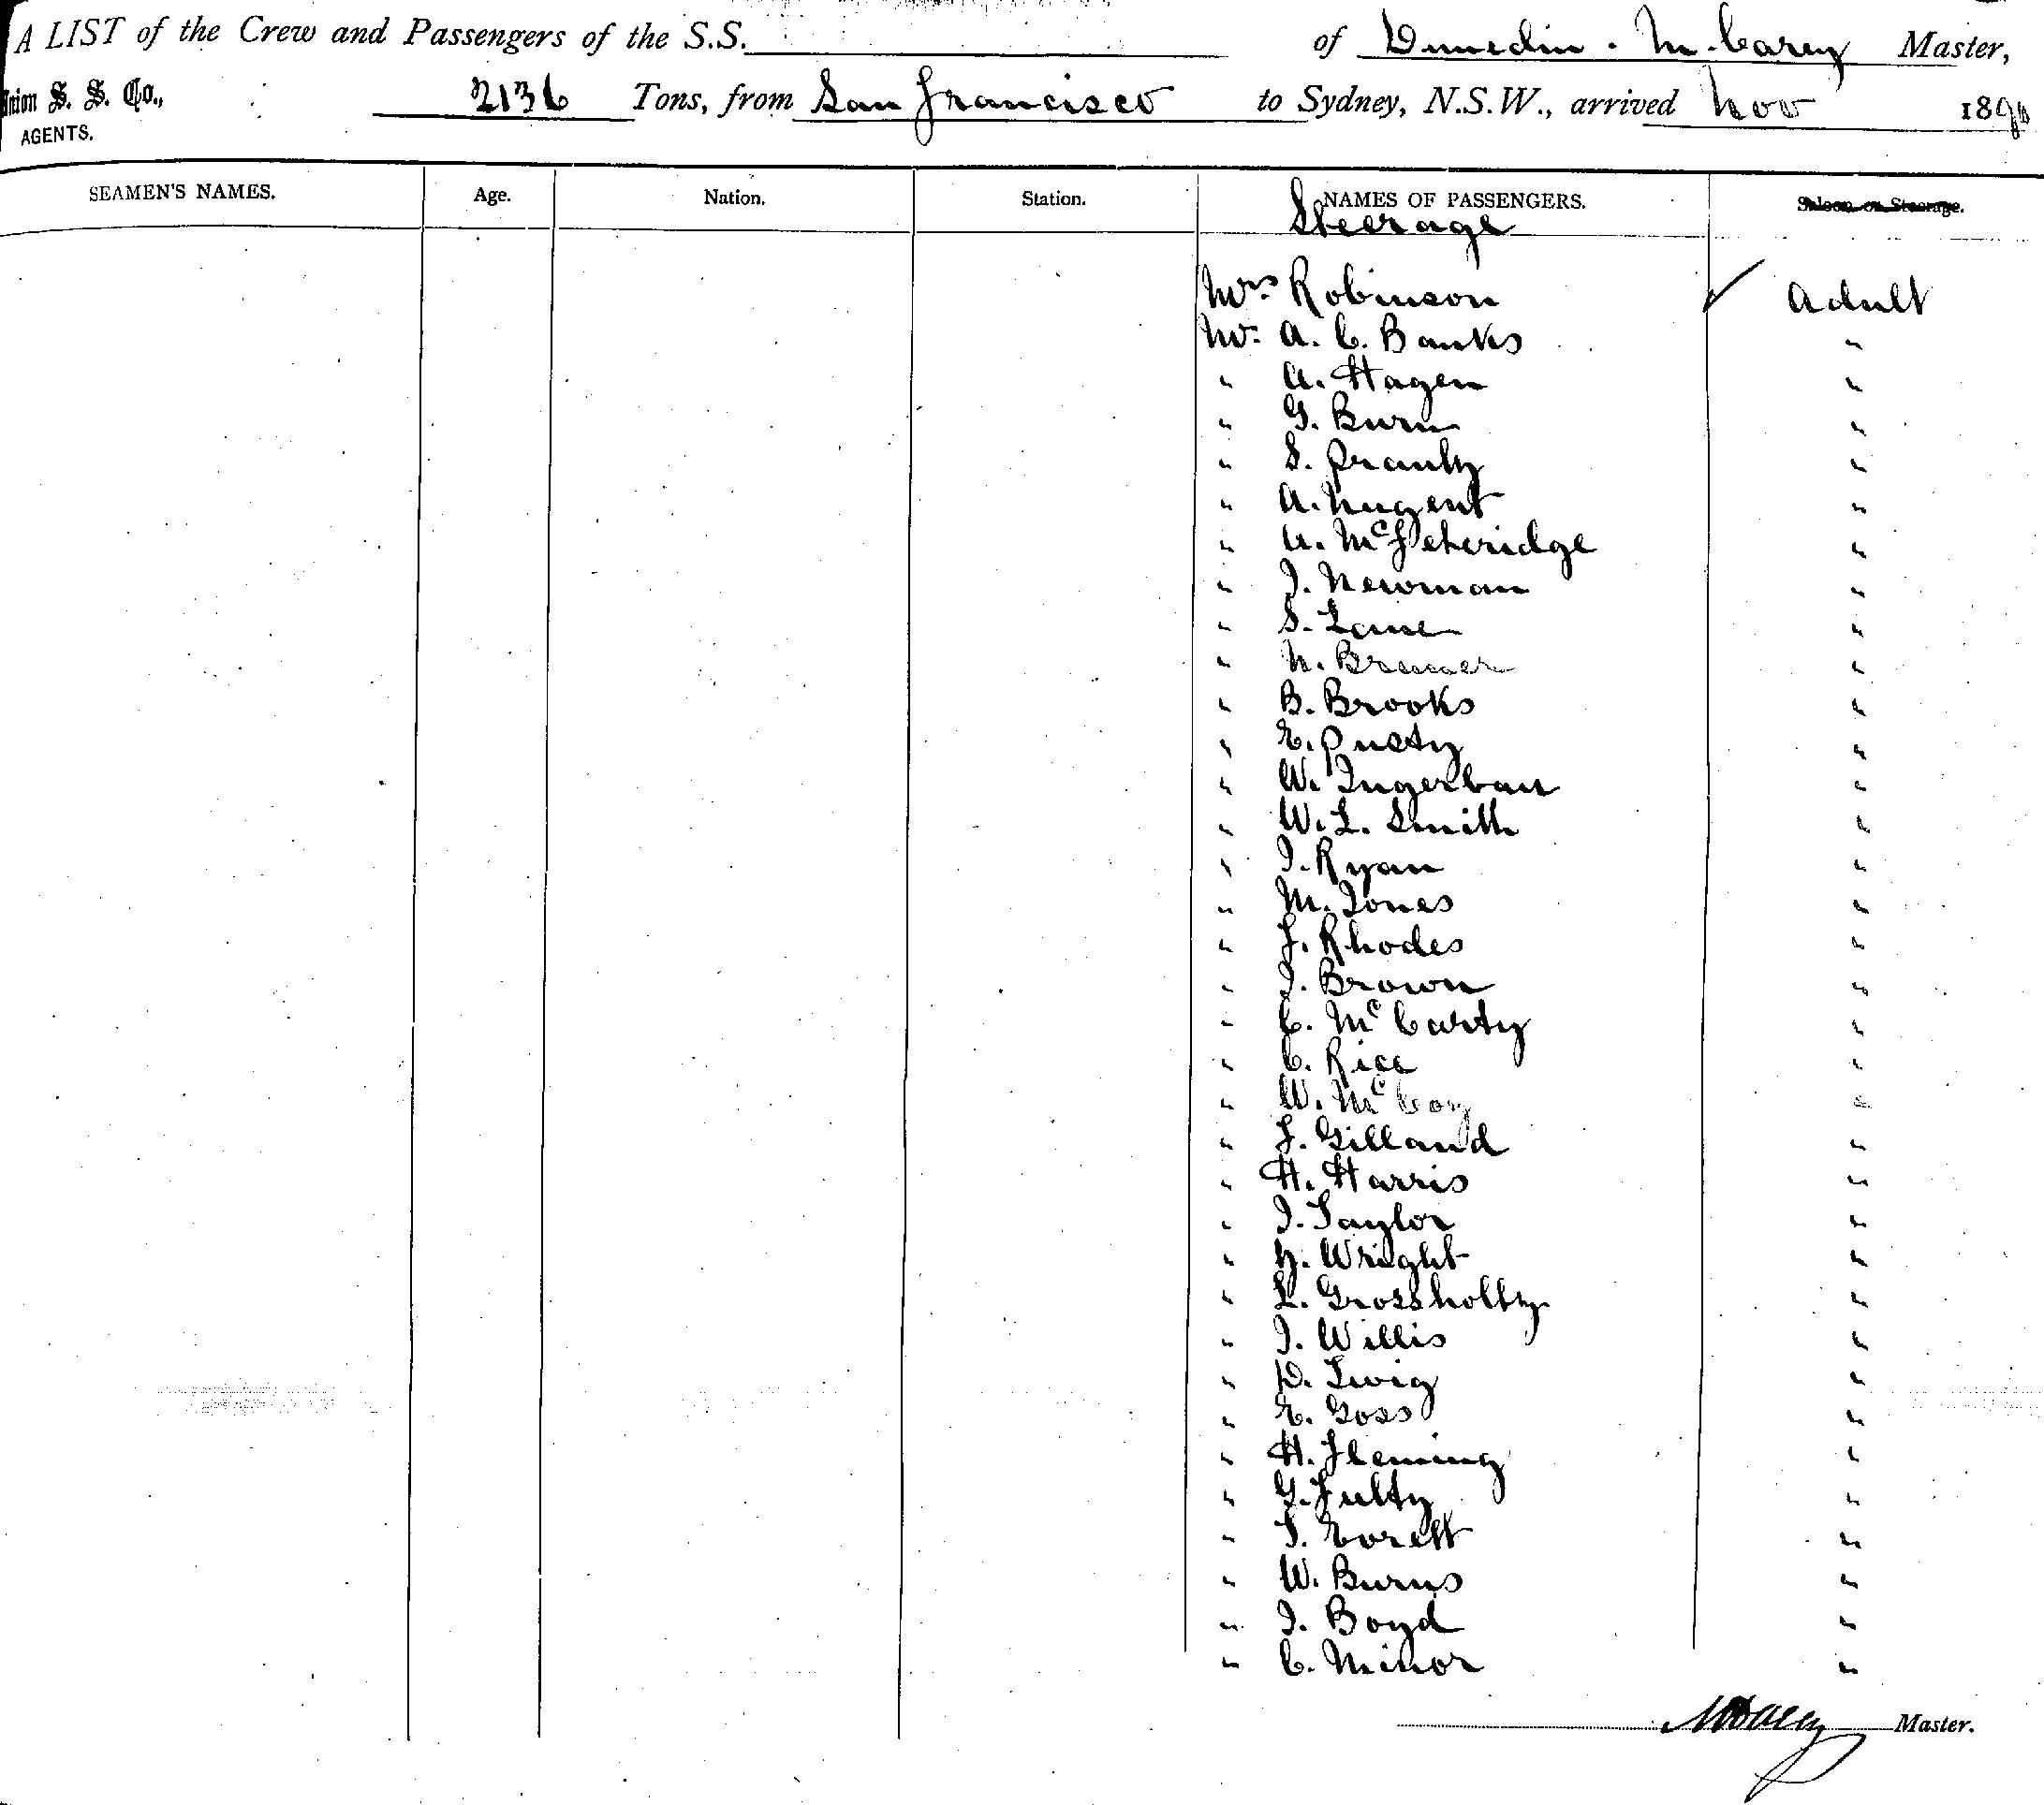 A LIST of the Crew and Passengers of the S.S. of Dunedin. M. Carey Master,
Union S. S. Co., 2136 Tons, from San Francisco to Sydney, N.S.W., arrived Nov 1890
AGENTS.
SEAMEN'S NAMES. Age. Nation. Station. NAMES OF PASSENGERS. Saloon or Steerage.
Steerage
Mrs Robinson ✓ Adult
Mr A. C. Banks "
" A. Hagen "
" G. Burn "
" S. "
" A. Nugent "
" A. McFetheridge "
" J. Newman "
" S. Lane "
" Bremer "
" B. Brooks "
" E. "
" W. "
" W. L. Smith "
" J. Ryan "
" M. Jones "
" J. Rhodes "
" J. Brown "
" C. McCarty "
" C. Rice "
" W. McCoy "
" J. Gilland "
" H. Harris "
" J. Taylor "
" Wright "
" L. Grossholtz "
" J. Willis "
" D. Twig "
" E. Goss "
" H. Fleming "
" G. Fultz "
" T. Evrett "
" W. Burns "
" J. Boyd "
" C. Minor "
M Carey Master.